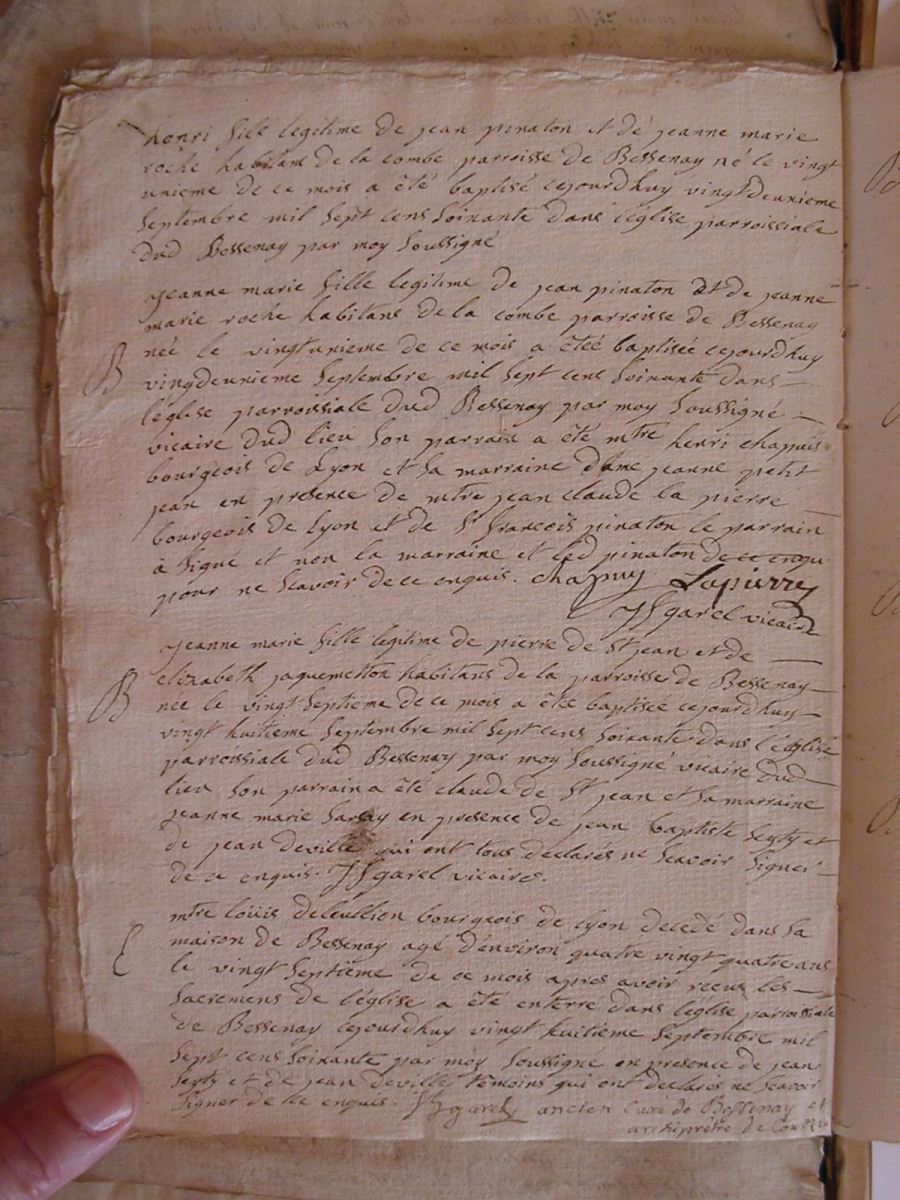 henri fils legitime de jean pinaton et de jeanne marie
roche habitans de la combe parroisse de Bessenay né le vingt
unieme de ce mois a été baptisé cejourdhuy vingtdeunieme
septembre mil sept cens soixante dans l'église parroissiale
dud Bessenay par moy soussigné
jeanne marie fille legitime de jean pinaton et de jeanne
marie roche habitans de la combe parroisse de Bessenay
née le vingtunieme de ce mois a étéé baptisée cejourdhuy
B vingdeunieme septembre mil sept cens soixante dans
l'église parroissiale dud Bessenay par moy soussigné
vicaire dud lieu son parrain a été mtre henri chapuis
bourgeois de Lyon et sa marraine dame jeanne petit
jean en presence de mtre jean claude la pierre
bourgeois de Lyon et de Sr francois pinaton le parrain
a signé et non la marraine et led pinaton de ce enqui
pour ne scavoir de ce enquis. chapuy Lapierre
JSgarel vicaire
jeanne marie fille légitime de pierre de St jean et de
elizabeth jaquemetton habitans de la parroisse de Bessenay
B née le vingt septieme de ce mois a étéé baptisée cejourdhuy
vingt huitieme septembre mil sept cens soixante dans l'église
parroissiale dud Bessenay par moy soussigné vicaire dud
lieu son parrain a été claude de St jean et sa marraine
jeanne marie en presence de jean baptiste et
de jean deville qui ont tous declarés ne scavoir signer
de ce enquis. JSgarel vicaire.
mtre loüis bourgeois de Lyon decedé dans sa
maison de Bessenay agé d'environ quatre vingt quatre ans
le vingt septieme de ce mois apres avoir recus les
sacremens de l'église a été enterré dans l'église parroissiale
de Bessenay cejourdhuy vingt huitieme septembre mil
sept cens soixante par moy soussigné en presence de jean
et de jean deville témoins qui ont declarés ne scavoir
signer de ce enquis. ancien curé de Bessenay et
archiprêtre de